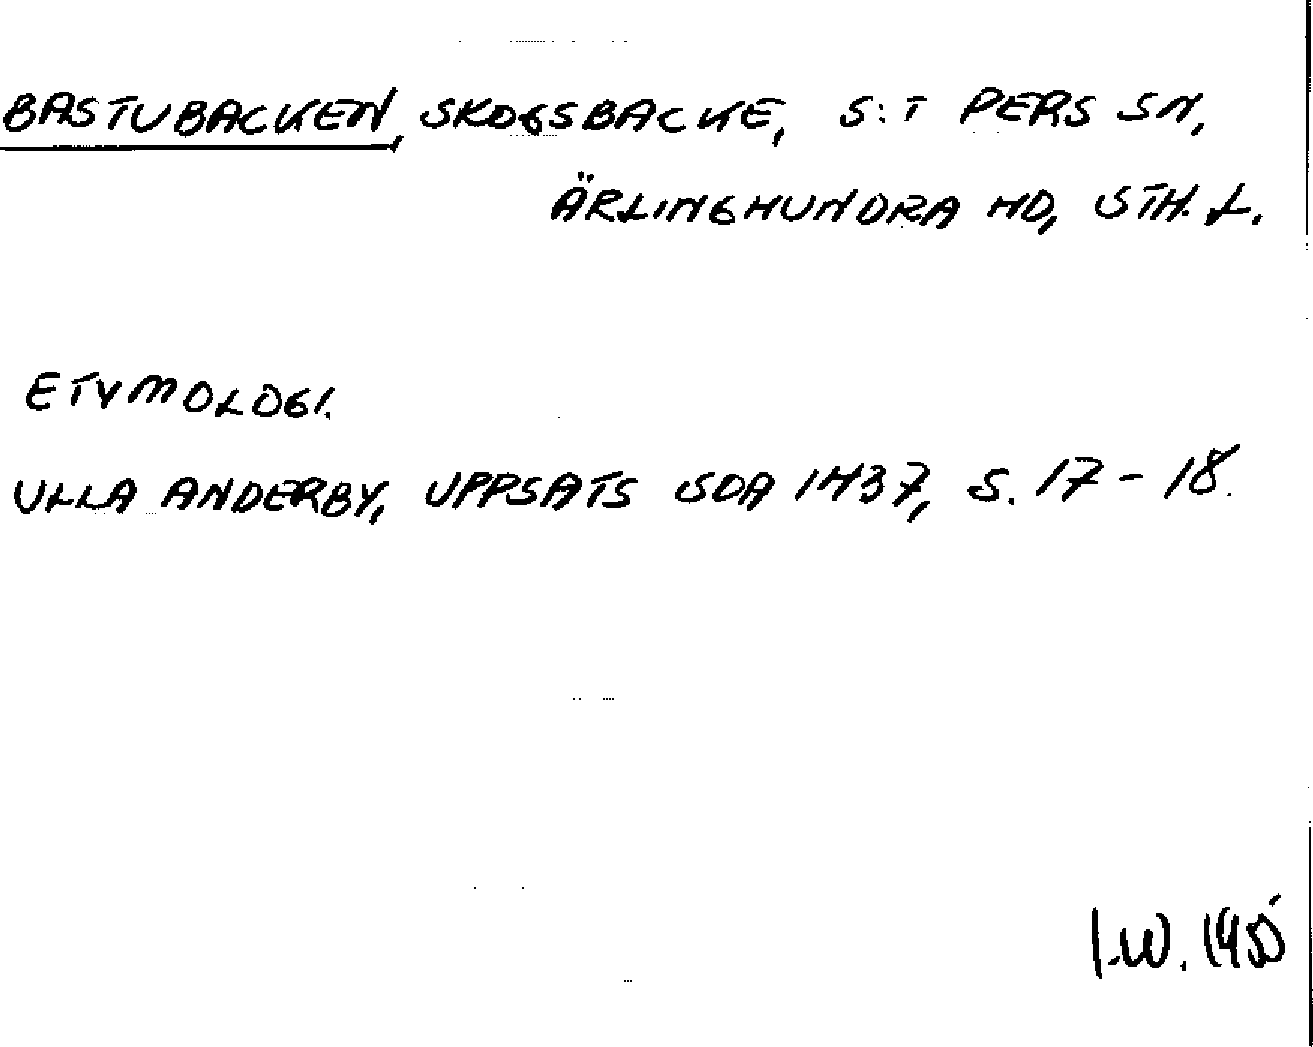 BASTUBACKEN, SKOGSBACKE, S:T PERS SN,
ÄRLINGHUNDRA HD, STH. L.
ETYMOLOGI.
ULLA ANDERBY, UPPSATS SOA 1437, S. 17-18.
I.W. 1955